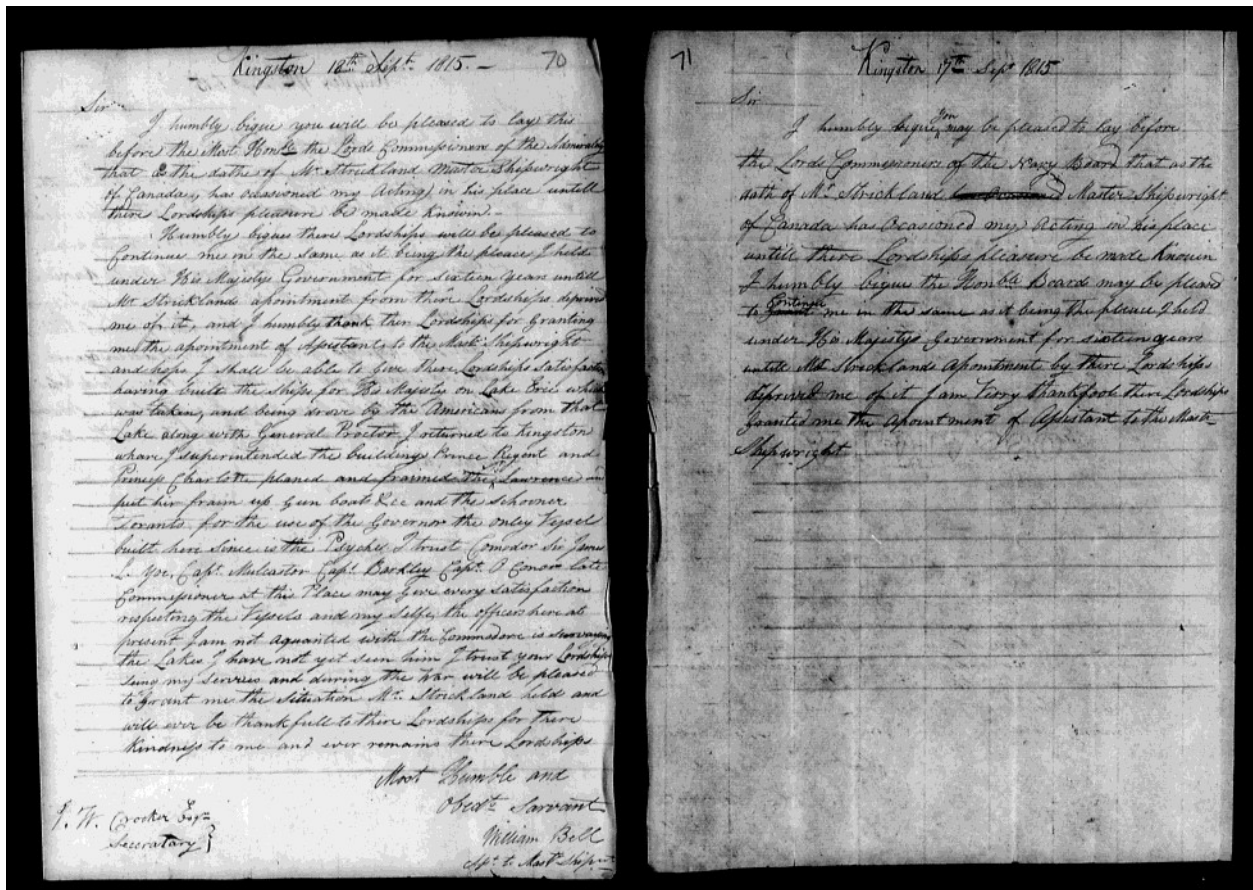 Kingston 18th Sept. 1815. — 70
Sir
I humbly bigue you will be pleased to lay this
before the Most Honble the Lords Commissioners of the Admiralty
that as the dathe of Mr Strickland Master Shipwright
of Canada, has ocasioned my Acting in his place untill
there Lordships pleasure be made Knowin.—
Humbly bigues there Lordships will be pleased to
Continue me in the same as it being the pleace I held
under His Majestys Government for sixteen years untill
Mr Stricklands apointment from there Lordships deprived
me of it, and I humbly thank there Lordships for Granting
me the apointment of Assistant to the Mastr Shipwright
and hope I shall be able to Give there Lordships Satisfaction
having built the ships for His Majesty on Lake Erie which
was taken, and being drove by the Americans from that
Lake along with General Proctor I returned to Kingston
whare I superintended the building Prince Regent and
Princess Charlotte planed and fraimed the St Lawrence and
put hir fraim up Gun boats &cc and the Schooner
Toranto for the use of the Governor the onley Vessel
built here Since is the Psyche I trust Comodor Sir James
L. Yeo, Capt. Mulcastor Capt. Barkley Capt. O Conor late
Commissioner at this Place may Give every satisfaction
respecting the Vessels and my Selfe, the officers here at
present I am not aquanted with the Commodore is survaying
the Lakes I have not yet seen him I trust your Lordships
Seing my Services and during the War will be pleased
to Grant me the Situation Mr. Strickland held and
will ever be thankfull to there Lordships for there
Kindness to me and ever remains there Lordships
Most Humble and
Obedt Sarvant
William Bell
Asst. to Mastr Shipwt
J. W. Crocker Esqr
Secretary }
71 Kingston 17th Sept 1815
Sir
I humbly bigue you may be pleased to lay before
the Lords Commissioners of the Navy Board that as the
dath of Mr Strickland Master Shipwright
of Canada has Ocasioned my Acting in his place
untill there Lordships pleasure be made Knowin
I humbly bigues the Honble Board may be pleased
to Grant Continue me in the same as it being the pleace I held
under His Majestys Government for sixteen years
untill Mr Stricklands Apointment by there Lordships
deprived me of it I am Very thankfool there Lordships
Granted me the Apointment of Assistant to the Mastr
Shipwright